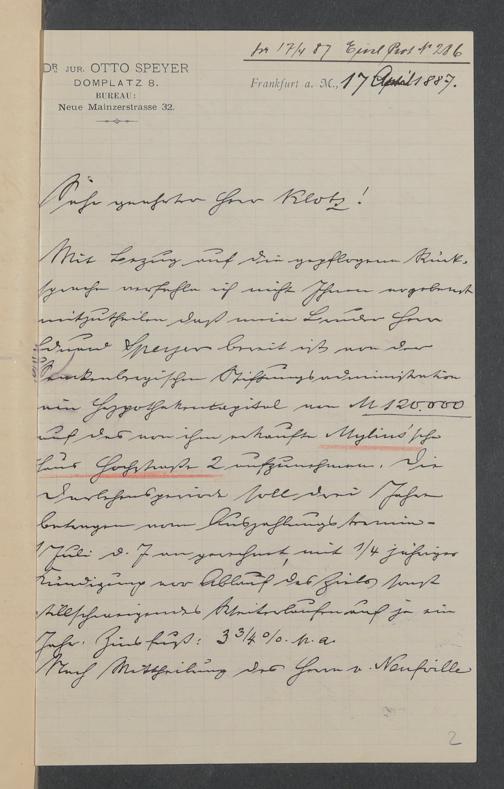 pr 17/4 87 Einl. Prot. № 206
DR JUR. OTTO SPEYER
DOMPLATZ 8.
BUREAU:
Neue Mainzerstrasse 32.
Frankfurt a. M., 17 April 1887.
Sehr geehrter Herr Klotz!
Mit Bezug auf die gepflogene Rück-
sprache verfehle ich nicht Ihnen ergebenst
mitzutheilen daß mein Bruder Herr
Eduard Speyer bereit ist von der
Senckenbergischen Stiftungsadministration
ein Hypothekencapital von M 120.000
auf das von ihm erkaufte Mylius'sche
Haus Hochstraße 2 aufzunehmen. Die
Darlehensperiode soll drei Jahre
betragen vom Auszahlungstermin -
1 Juli d. J an gerechnet, mit 1/4 jähriger
Kündigung vor Ablauf des Ziels, sonst
stillschweigendes Weiterlaufen auf je ein
Jahr. Zinsfuß: 3 3/4 %. p. a.
Nach Mittheilung des Herrn v. Neufville
2